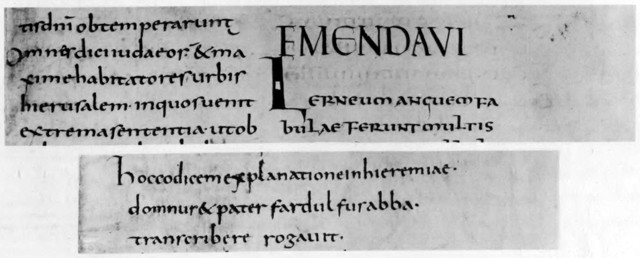 tisdnī obtemperarunt
Omnes dici iudaeor· & ma
xime habitatores urbis
hierusalem· in quos uenit
extrema sententia· ut ob
EMENDAVI
LERNEUM ANGUEM FA
BULAE FERUNT MULTIS
hoc codicem explanatione in hieremiae·
domnus & pater fardulfus abba·
transcribere rogauit·